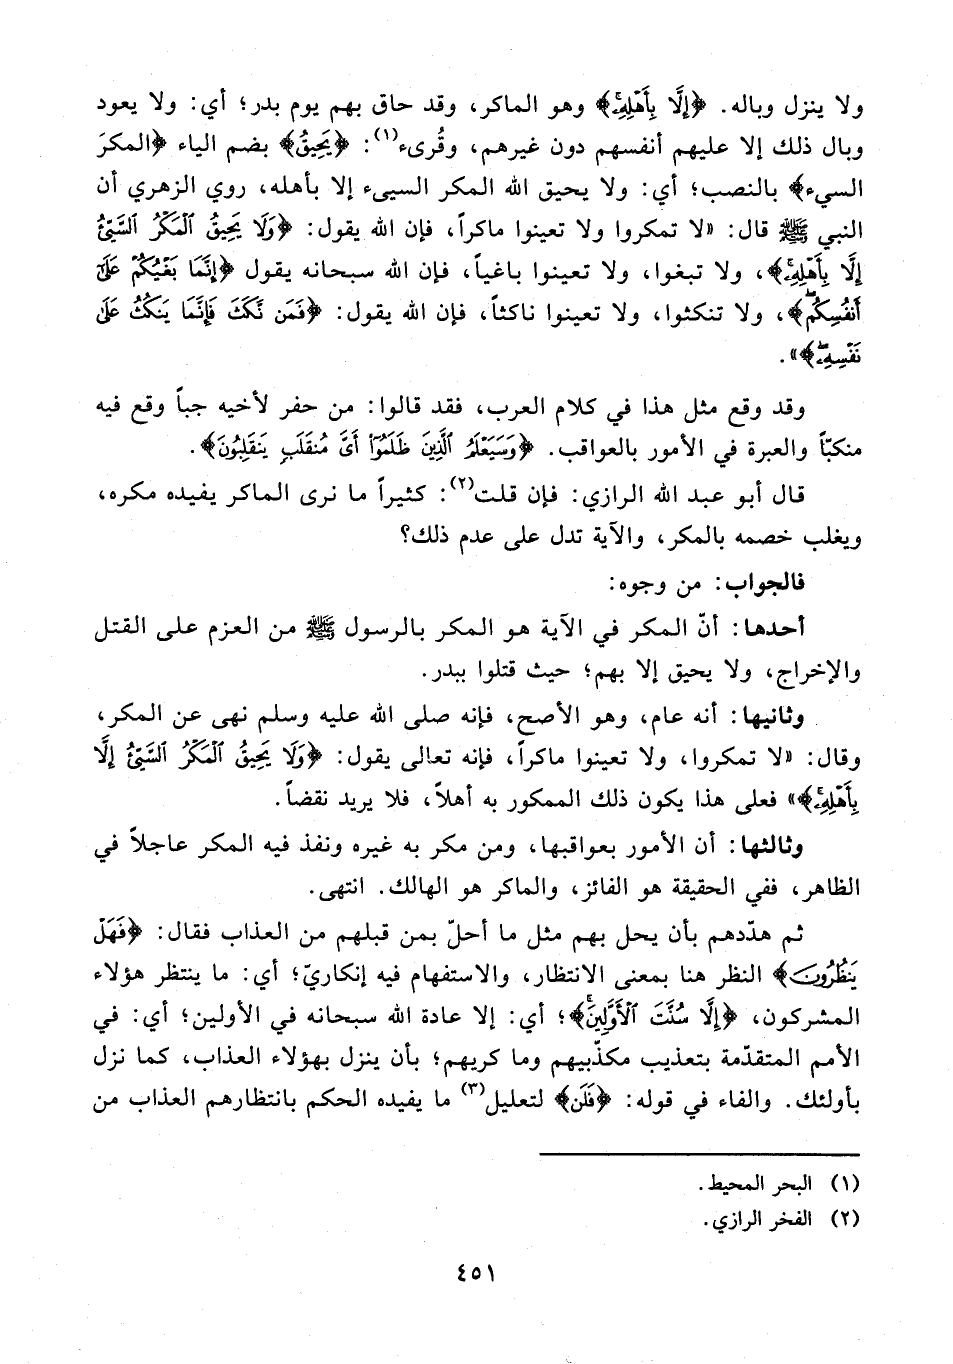 ولا ينزل وباله. ﴿إِلَّا بِأَهْلِهِۦ﴾ وهو الماكر، وقد حاق بهم يوم بدر؛ أي: ولا يعود
وبال ذلك إلا عليهم أنفسهم دون غيرهم، وقُرىء(١): ﴿يَحِيقُ﴾ بضم الياء ﴿المكرَ
السيء﴾ بالنصب؛ أي: ولا يحيق الله المكر السيىء إلا بأهله، روي الزهري أن
النبي ﷺ قال: «لا تمكروا ولا تعينوا ماكراً، فإن الله يقول: ﴿وَلَا يَحِيقُ ٱلْمَكْرُ ٱلسَّيِّئُ
إِلَّا بِأَهْلِهِۦ﴾، ولا تبغوا، ولا تعينوا باغياً، فإن الله سبحانه يقول ﴿إِنَّمَا بَغْيُكُمْ عَلَىٰٓ
أَنفُسِكُمۖ﴾، ولا تنكثوا، ولا تعينوا ناكثاً، فإن الله يقول: ﴿فَمَن نَّكَثَ فَإِنَّمَا يَنكُثُ عَلَىٰ
نَفْسِهِۦۖ﴾».
وقد وقع مثل هذا في كلام العرب، فقد قالوا: من حفر لأخيه جباً وقع فيه
منكبّاً والعبرة في الأمور بالعواقب. ﴿وَسَيَعْلَمُ ٱلَّذِينَ ظَلَمُوٓا۟ أَىَّ مُنقَلَبٍ يَنقَلِبُونَ﴾.
قال أبو عبد الله الرازي: فإن قلت(٢): كثيراً ما نرى الماكر يفيده مكره،
ويغلب خصمه بالمكر، والآية تدل على عدم ذلك؟
فالجواب: من وجوه:
أحدها: أنّ المكر في الآية هو المكر بالرسول ﷺ من العزم على القتل
والإخراج، ولا يحيق إلا بهم؛ حيث قتلوا ببدر.
وثانيها: أنه عام، وهو الأصح، فإنه صلى الله عليه وسلم نهى عن المكر،
وقال: «لا تمكروا، ولا تعينوا ماكراً، فإنه تعالى يقول: ﴿وَلَا يَحِيقُ ٱلْمَكْرُ ٱلسَّيِّئُ إِلَّا
بِأَهْلِهِۦ﴾» فعلى هذا يكون ذلك الممكور به أهلاً، فلا يريد نقضاً.
وثالثها: أن الأمور بعواقبها، ومن مكر به غيره ونفذ فيه المكر عاجلاً في
الظاهر، ففي الحقيقة هو الفائز، والماكر هو الهالك. انتهى.
ثم هدّدهم بأن يحل بهم مثل ما أحلّ بمن قبلهم من العذاب فقال: ﴿فَهَلْ
يَنظُرُونَ﴾ النظر هنا بمعنى الانتظار، والاستفهام فيه إنكاريّ؛ أي: ما ينتظر هؤلاء
المشركون، ﴿إِلَّا سُنَّتَ ٱلْأَوَّلِينَۚ﴾؛ أي: إلا عادة الله سبحانه في الأولين؛ أي: في
الأمم المتقدّمة بتعذيب مكذّبيهم وما كريهم؛ بأن ينزل بهؤلاء العذاب، كما نزل
بأولئك. والفاء في قوله: ﴿فَلَن﴾ لتعليل(٣) ما يفيده الحكم بانتظارهم العذاب من
(١) البحر المحيط.
(٢) الفخر الرازي.
٤٥١